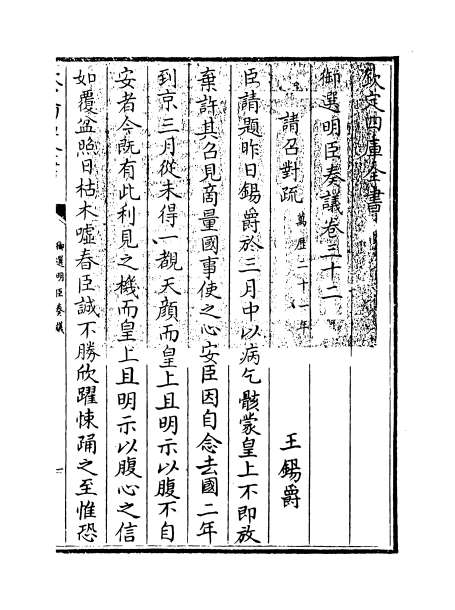 欽定四庫全書
御選明臣奏議卷三十二
請召對疏 萬歷二十一年 王錫爵
臣請題昨日錫爵於三月中以病乞骸蒙皇上不即放
棄許其召見商量國事使之心安臣因自念去國二年
到京三月從未得一覩天顔而皇上且明示以腹不自
安者今既有此利見之機而皇上且明示以腹心之信
如覆盆照日枯木噓春臣誠不勝欣躍悚踊之至惟恐
御選明臣奏議
一